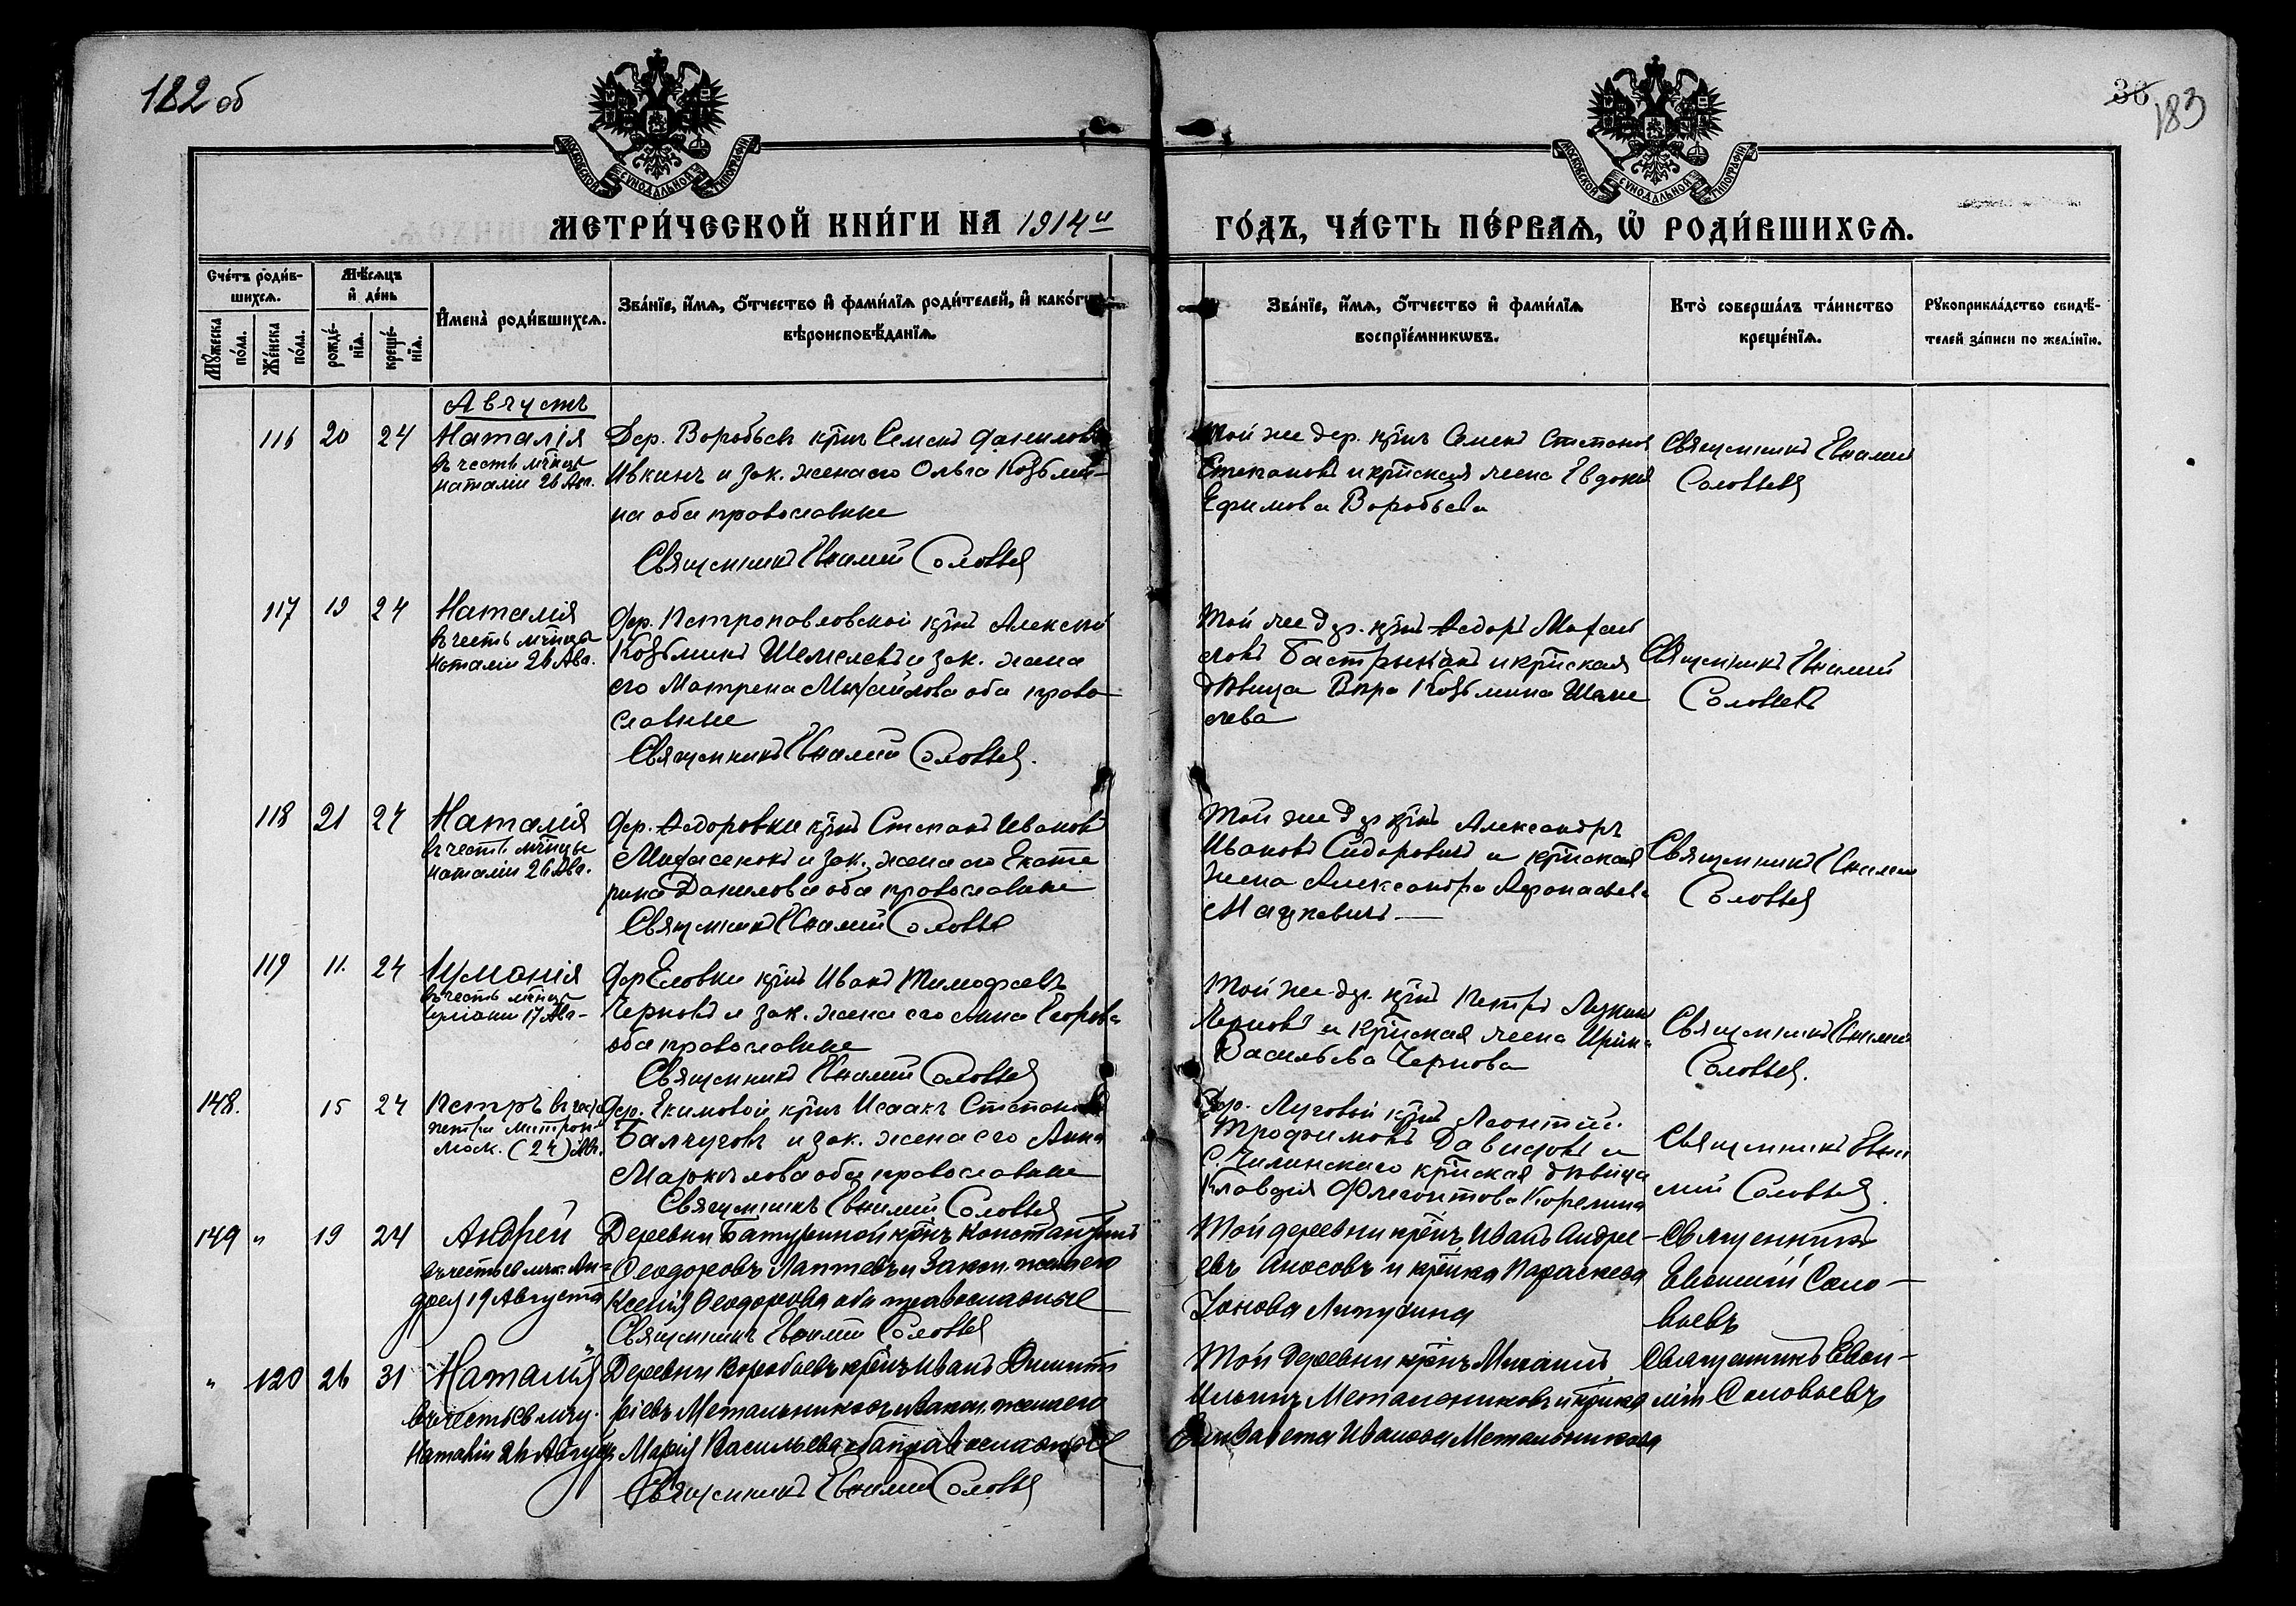 182 об
36
183
МОСКОВСКОЙ СѴНОДАЛЬНОЙ ТИПОГРАФІИ
МОСКОВСКОЙ СѴНОДАЛЬНОЙ ТИПОГРАФІИ
МЕТРИ́ЧЕСКОЙ КНИ́ГИ НА 1914й
ГО́ДЪ, ЧА́СТЬ ПЕ́РВАѦ, Ѽ РОДИ́ВШИХСѦ.
Сче́тъ роди́в-
шихсѧ.
Мѣ́сѧцъ
и҆ де́нь
И҆мена̀ роди́вшихсѧ.
Зва́нїе, и҆́мѧ, ѻ҆́тчество и҆ фами́лїѧ роди́телей, и҆ како́гѡ
вѣроисповѣ́данїѧ.
Мꙋ́жеска
по́ла.
Же́нска
по́ла.
рожде́-
нїѧ.
креще́-
нїѧ.
Зва́нїе, и҆́мѧ, ѻ҆́тчество и҆ фами́лїѧ
воспрїе́мникѡвъ.
Кто̀ соверша́лъ та́инство
креще́нїѧ.
Рꙋкоприкла́дство свидѣ́-
телей за́писи по жела́нїю.
Августъ
116 20 24 Наталія
въ честь мчнцы
Наталіи 26 Авг.
Дер. Воробьевъ крнъ Семенъ Даниловъ
Ивкинъ и зак. жена его Ольга Козьми-
на оба православные
Священникъ Евѳимій Соловьевъ
Той же дер. крнъ Семенъ Степановъ
Степановъ и крнская жена Евдокія
Ефимова Воробьева
Священникъ Евѳимій
Соловьевъ
117 19 24 Наталія
въ честь мчнцы
Наталіи 26 Авг.
Дер. Петропавловской крнъ Алексѣй
Козьминъ Шемелевъ и зак. жена
его Матрена Михайлова оба право
славные
Священникъ Евѳимій Соловьевъ.
Той же дер. крнъ Ѳедоръ Михаи
ловъ и крнская
дѣвица Вѣра Козьмина Шеме
лева
Священникъ Евѳимій
Соловьевъ
118 21 24 Наталія
въ честь мчнцы
Наталіи 26 Авг.
Дер. Ѳедоровки крнъ Степанъ Ивановъ
и зак. жена его Екате
рина Данилова оба православные
Священникъ Евѳимій Соловьевъ
Той же дер крнъ Александръ
Ивановъ Сидоровичъ и крнская
жена Александра Афанасьева
Мацкевичъ —
Священникъ Евѳимій
Соловьевъ
119 11. 24 Іуліанія
въ честь мчнцы
Іуліаніи 17 Авг-
Дер Еловки крнъ Иванъ Тимофеевъ
Черновъ и зак. жена его Анна Егорова
оба православные
Священникъ Евѳимій Соловьевъ
Той же дер. крнъ Петръ Лукинъ
Черновъ и крнская жена Ирина
Васильева Чернова
Священникъ Евѳимій
Соловьевъ.
148. 15 24 Петръ въ честь
Петра Митроп.
Моск. (24) Авг.
Дер. Екимовой крнъ Исаакъ Степановъ
Балчуговъ и зак. жена его Анна
Маркелова оба православные
Священникъ Евѳимій Соловьевъ
Дер. Луговой крнъ Леонтій
Трофимовъ Давыдовъ и
с. Чилинскаго крнская дѣвица
Клавдія Флегонтова Корелина
Священникъ Евѳи
мій Соловьевъ.
149 " 19 24 Андрей
въ честь св. мчк. Ан-
дрея 19 Августа
Деревни Батуриной крнъ Константинъ
Ѳеодоровъ Лаптевъ и закон. жена его
Ксенія Ѳеодорова оба православные
Священникъ Евѳимій Соловьевъ
Той деревни крнъ Иванъ Андре-
евъ Аносовъ и крнка Параскева
Іонова Липухина
Священникъ
Евѳимій Соло-
вьевъ
" 120 26 31 Наталія
въ честь св. мчц.
Наталіи 26 Августа
Деревни Воробьевъ крнъ Иванъ Димитр
ріевъ Метальниковъ и закон. жена его
Марія Васильева оба православные
Священникъ Евѳимій Соловьевъ
Той деревни крнъ Михаилъ
Ильинъ Метальниковъ и крнка
Елизавета Иванова Метальникова
Священникъ Евѳи-
мій Соловьевъ